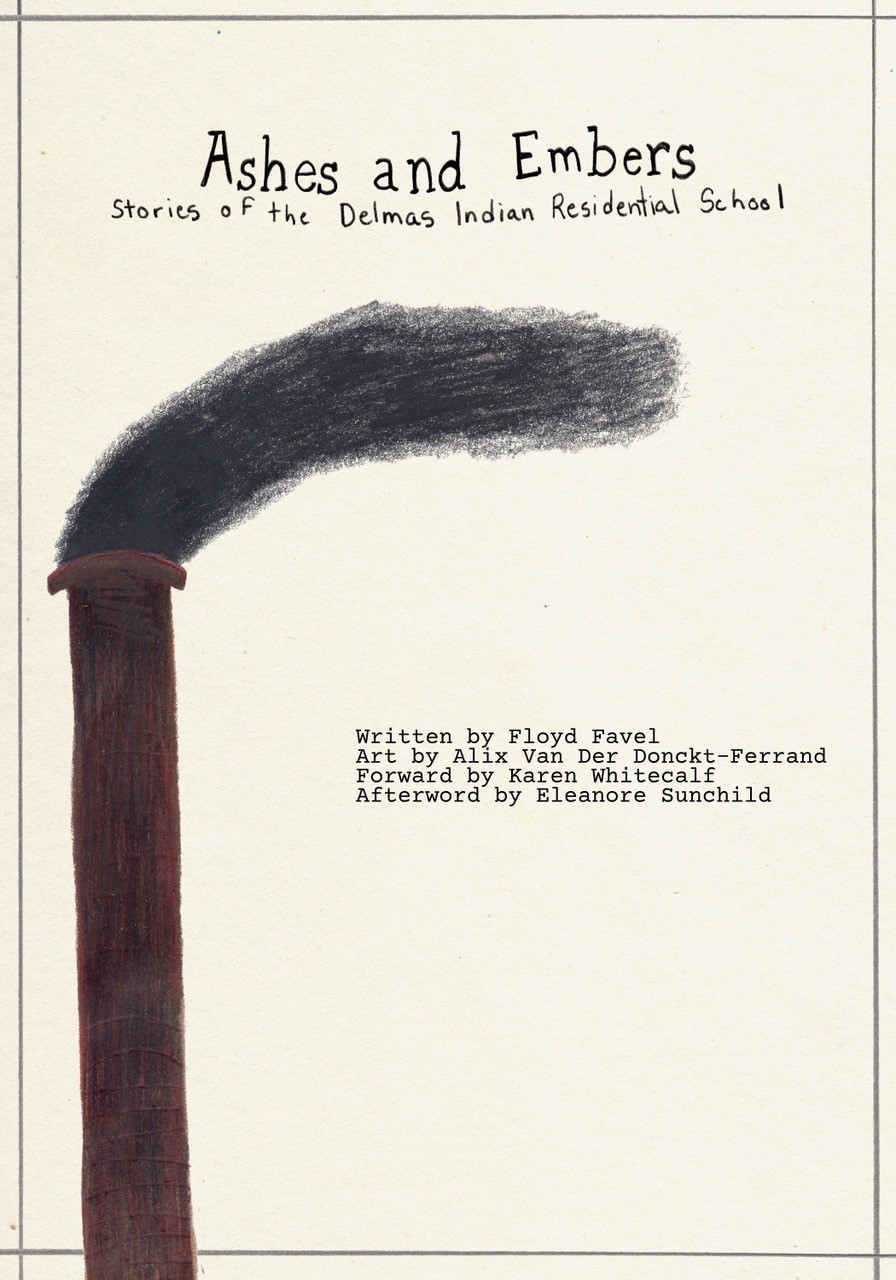 Ashes and Embers
Stories of the Delmas Indian Residential School
Written by Floyd Favel
Art by Alix Van Der Donckt-Ferrand
Forward by Karen Whitecalf
Afterword by Eleanore Sunchild